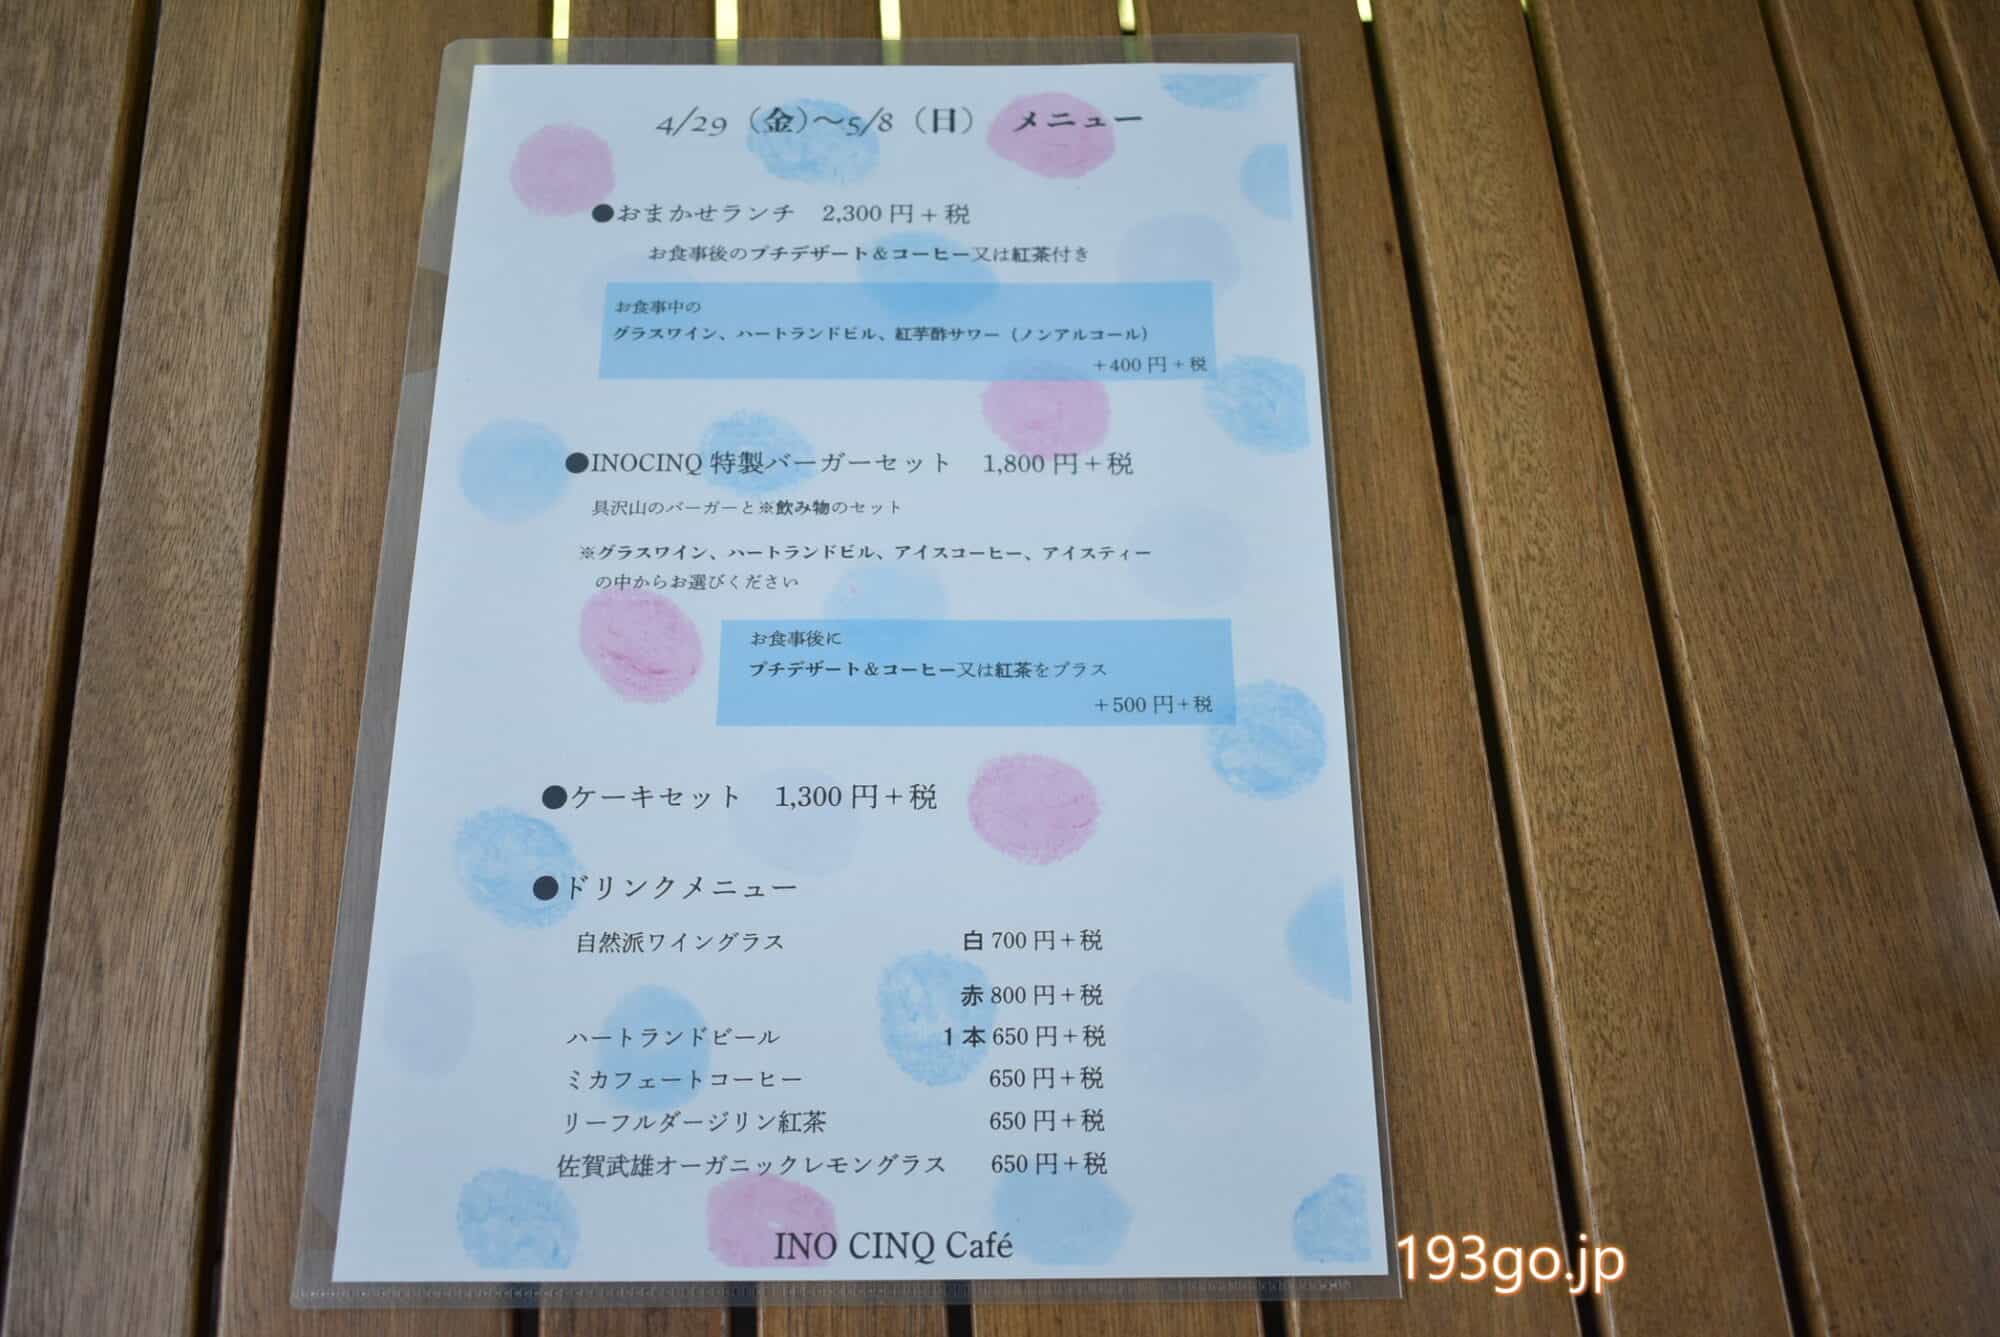 4/29（金）～5/8（日）　メニュー
●おまかせランチ　2,300 円＋税
お食事後のプチデザート＆コーヒー又は紅茶付き
お食事中の
グラスワイン、ハートランドビル、紅芋酢サワー（ノンアルコール）
＋400 円＋税
●INOCINQ 特製バーガーセット　1,800 円＋税
具沢山のバーガーと※飲み物のセット
※グラスワイン、ハートランドビル、アイスコーヒー、アイスティー
の中からお選びください
お食事後に
プチデザート＆コーヒー又は紅茶をプラス
＋500 円＋税
●ケーキセット　1,300 円＋税
●ドリンクメニュー
自然派ワイングラス　白 700 円＋税
赤 800 円＋税
ハートランドビール　1 本 650 円＋税
ミカフェートコーヒー　650 円＋税
リーフルダージリン紅茶　650 円＋税
佐賀武雄オーガニックレモングラス　650 円＋税
INO CINQ Café
193go.jp